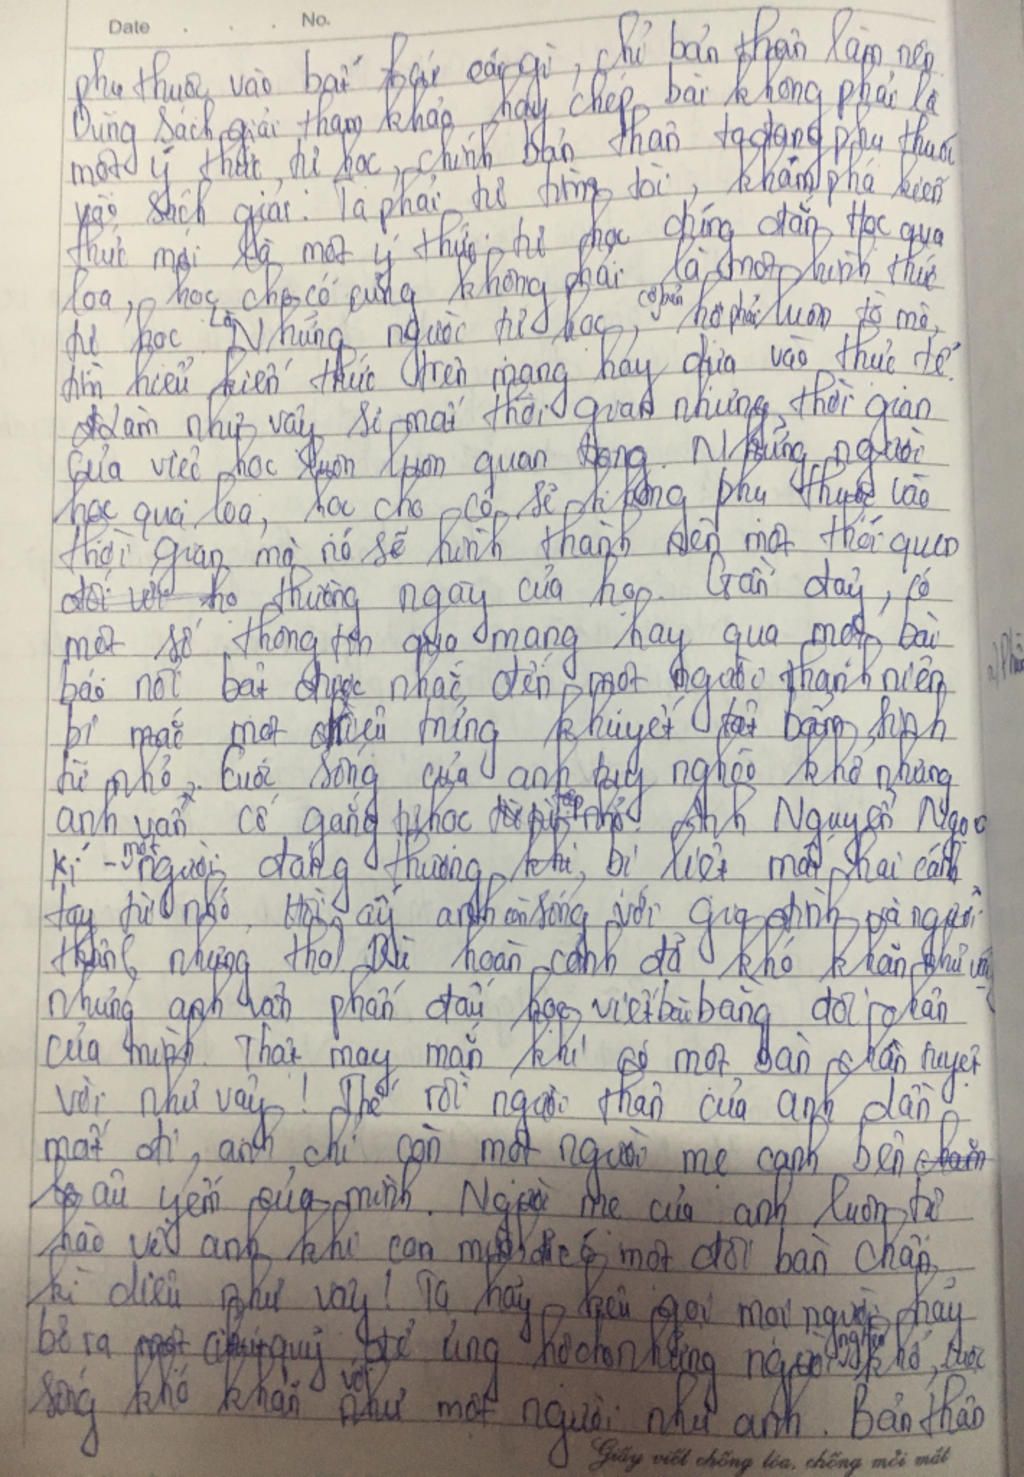 Date . . . No.
phụ thuộc vào bất cứ cái gì, chỉ bản thân làm nên.
Dùng sách giải tham khảo hay chép bài không phải là
một ý thức tự học, chính bản thân ta đang phụ thuộc
vào sách giải. Ta phải tự tìm tòi, khám phá kiến
thức mới là một ý thức tự học đúng đắn. Học qua
loa, học cho có cũng không phải là một hình thức
tự học. Là Những người tự học, cơ bản họ phải luôn tò mò,
tìm hiểu kiến thức trên mạng hay dựa vào thực tế.
Làm như vậy sẽ mất thời gian nhưng thời gian
của việc học luôn luôn quan trọng. Những người
học qua loa, học cho có sẽ không phụ thuộc vào
thời gian mà nó sẽ hình thành nên một thói quen
đối với họ thường ngày của họ. Gần đây, có
một số thông tin qua mạng hay qua một bài
báo nổi bật được nhắc đến một người thanh niên
bị mắc một khuyết tật bẩm sinh
từ nhỏ. Cuộc sống của anh tuy nghèo khó nhưng
anh vẫn cố gắng tự học nhỏ. Anh Nguyễn Ngọc
Kí - một người đáng thương khi bị liệt mất hai cánh
tay từ nhỏ. Hồi ấy anh còn sống với gia đình và người
thân nhưng Dù hoàn cảnh đã khó khăn như vậy
nhưng anh vẫn phấn đấu học viết bài bằng đôi chân
của mình. Thật may mắn khi có một bàn chân tuyệt
vời như vậy! Thế rồi người thân của anh dần
mất đi, anh chỉ còn một người mẹ cạnh bên
âu yếm của mình. Người mẹ của anh luôn tự
hào về anh khi con mình có một đôi bàn chân
kì diệu như vậy! Ta hãy kêu gọi mọi người hãy
bỏ ra quỹ để ủng hộ cho những người nghèo khó, cuộc
sống khó khăn với như một người như anh. Bản thân
Giấy viết chống lóa, chống mỏi mắt